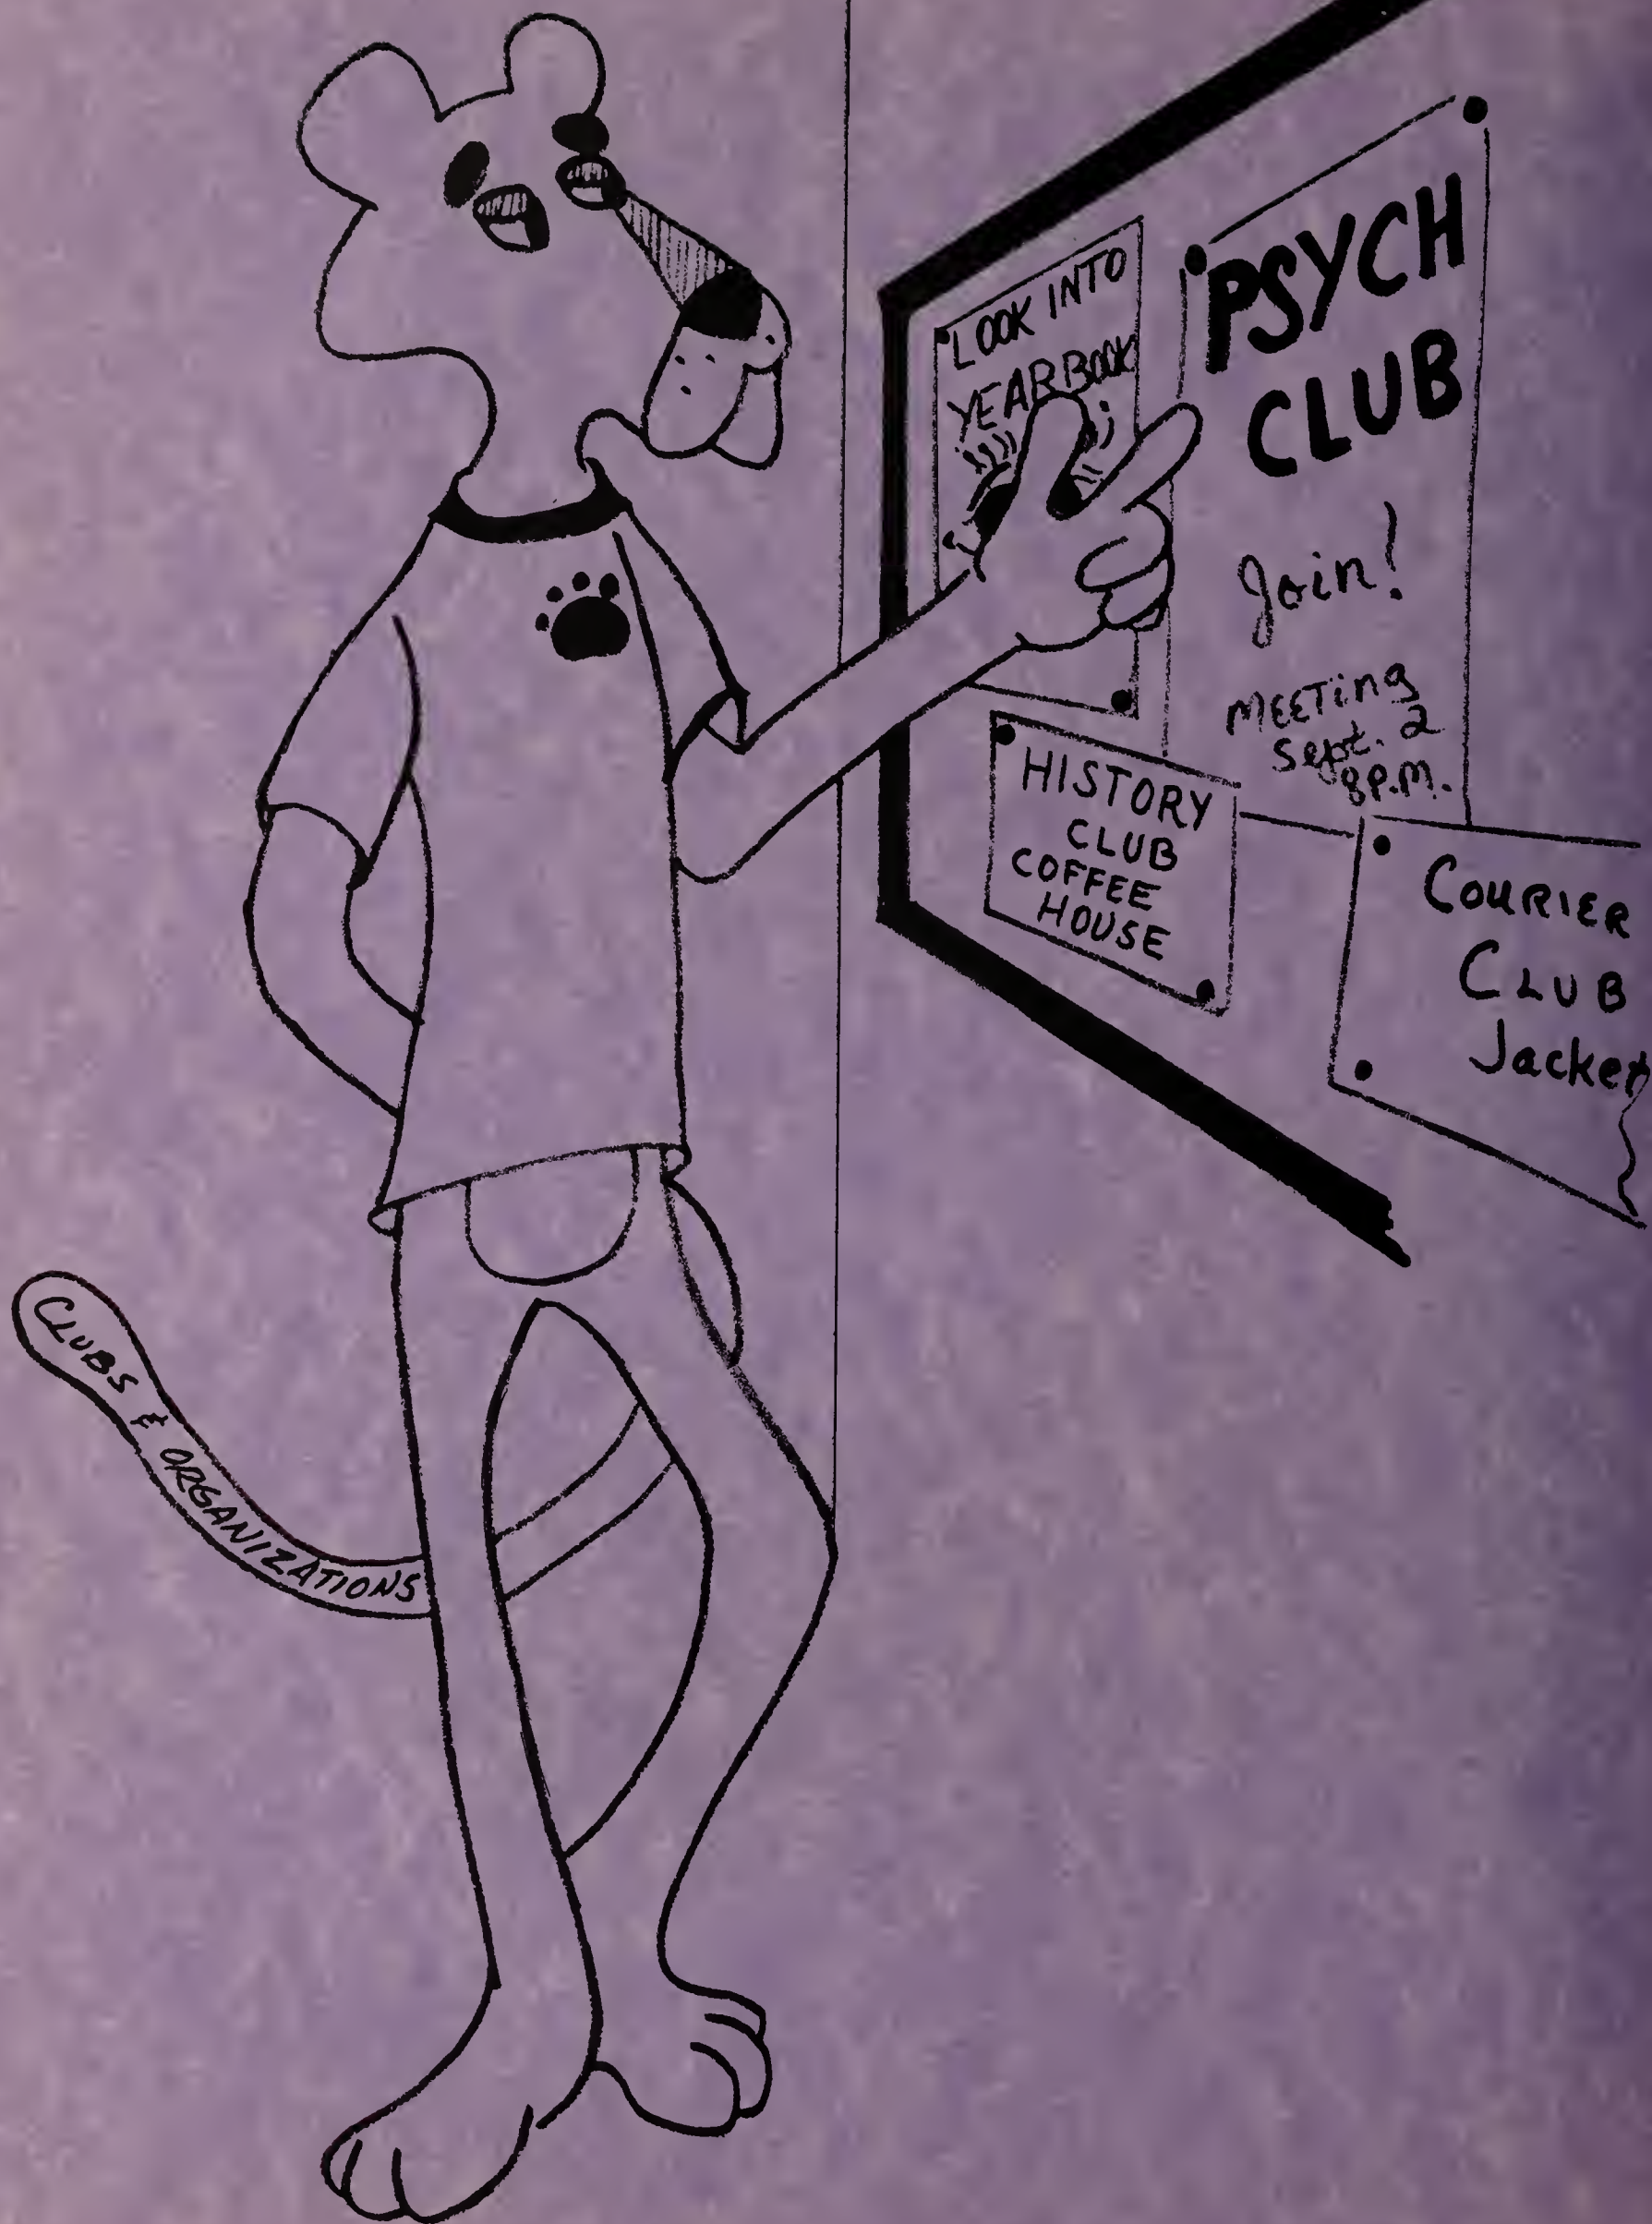 LOOK INTO
YEARBOOK
PSYCH
CLUB
Join!
MEETING
Sept. 2
8 P.M.
HISTORY
CLUB
COFFEE
HOUSE
COURIER
CLUB
Jacket
CLUBS & ORGANIZATIONS